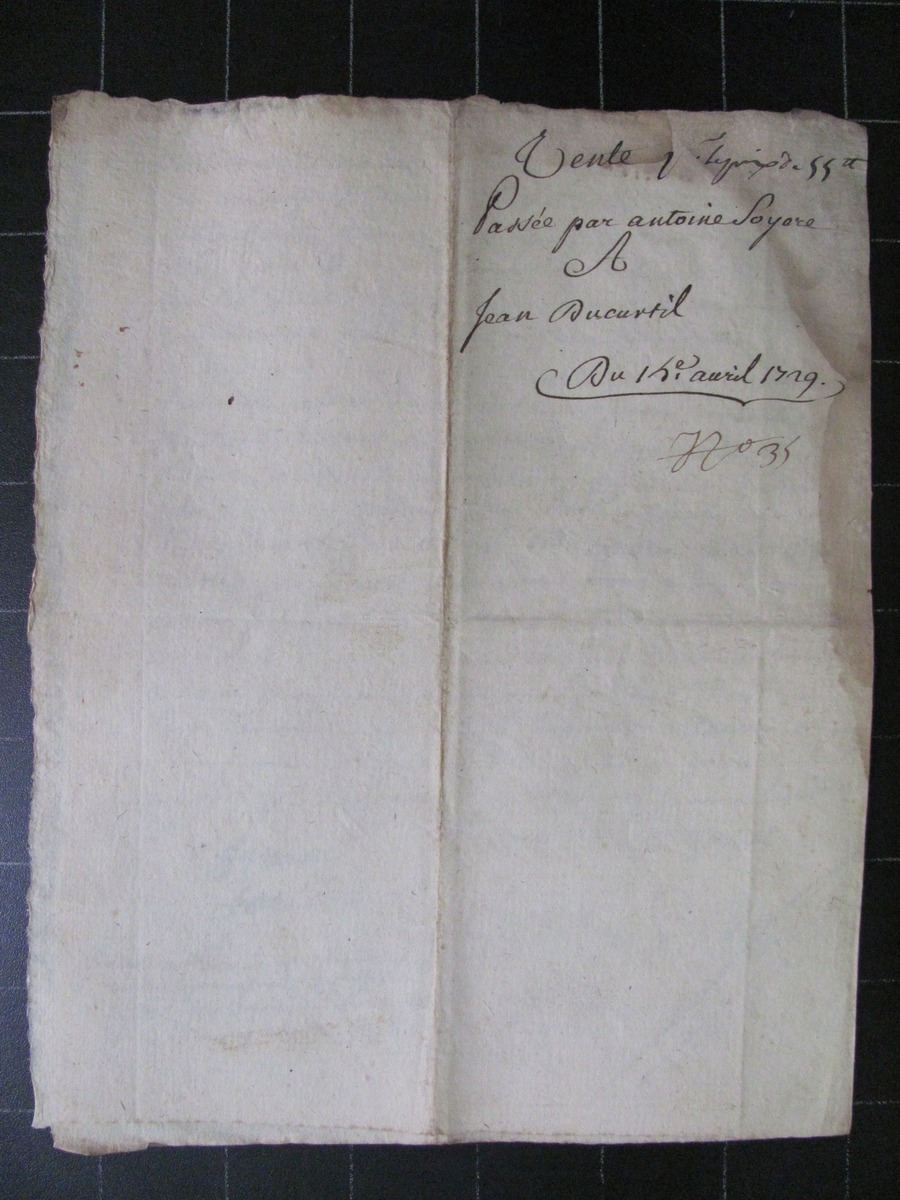 Vente le prix de 55 tt
Passée par antoine Soyere
A
Jean Ducurtil
Du 14e. auril 1729.
No 35